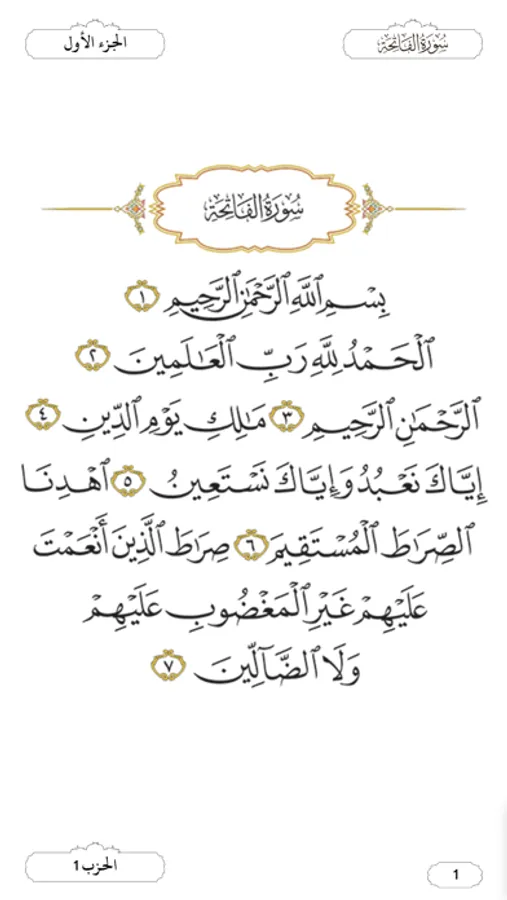 سُورَةُ الفَاتِحَةِ
الجزء الأول
سُورَةُ الفَاتِحَةِ
بِسْمِ ٱللَّهِ ٱلرَّحْمَٰنِ ٱلرَّحِيمِ ١
ٱلْحَمْدُ لِلَّهِ رَبِّ ٱلْعَٰلَمِينَ ٢
ٱلرَّحْمَٰنِ ٱلرَّحِيمِ ٣ مَٰلِكِ يَوْمِ ٱلدِّينِ ٤
إِيَّاكَ نَعْبُدُ وَإِيَّاكَ نَسْتَعِينُ ٥ ٱهْدِنَا
ٱلصِّرَٰطَ ٱلْمُسْتَقِيمَ ٦ صِرَٰطَ ٱلَّذِينَ أَنْعَمْتَ
عَلَيْهِمْ غَيْرِ ٱلْمَغْضُوبِ عَلَيْهِمْ
وَلَا ٱلضَّآلِّينَ ٧
الحزب 1
1